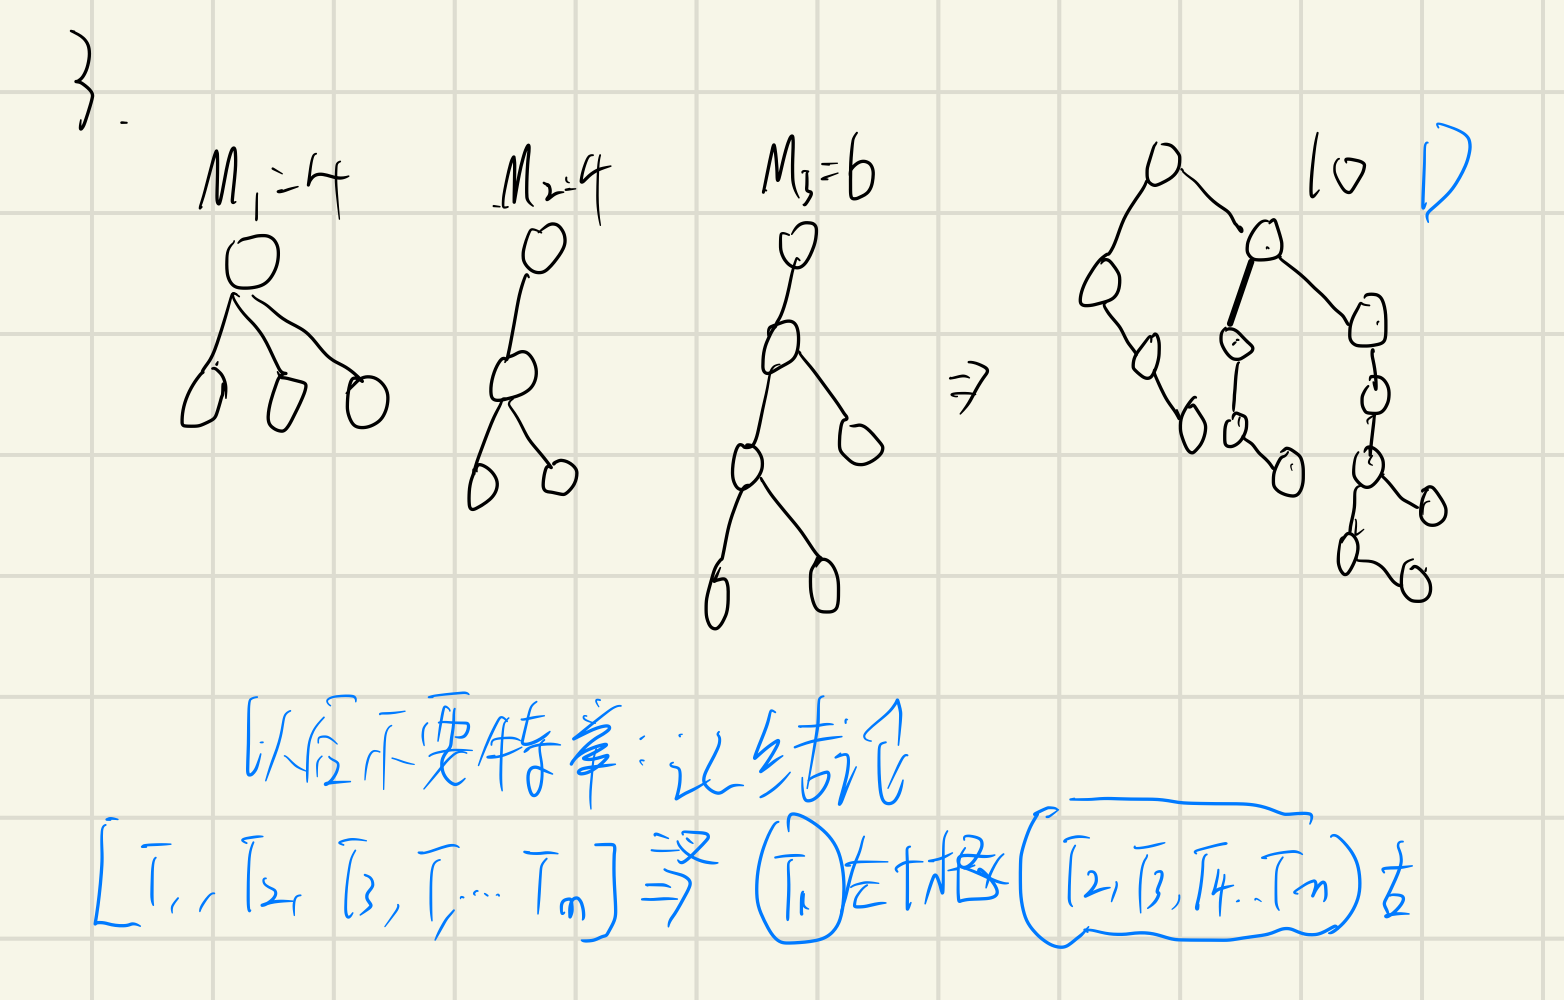 }.
M₁=4 M₂=4 M₃=6 ⇒ 10 D
以后不要特举:记结论
[T₁, T₂, T₃, T, ... Tₘ] ⇒ T₁左 + 根 (T₂, T₃, T₄...Tₘ)右